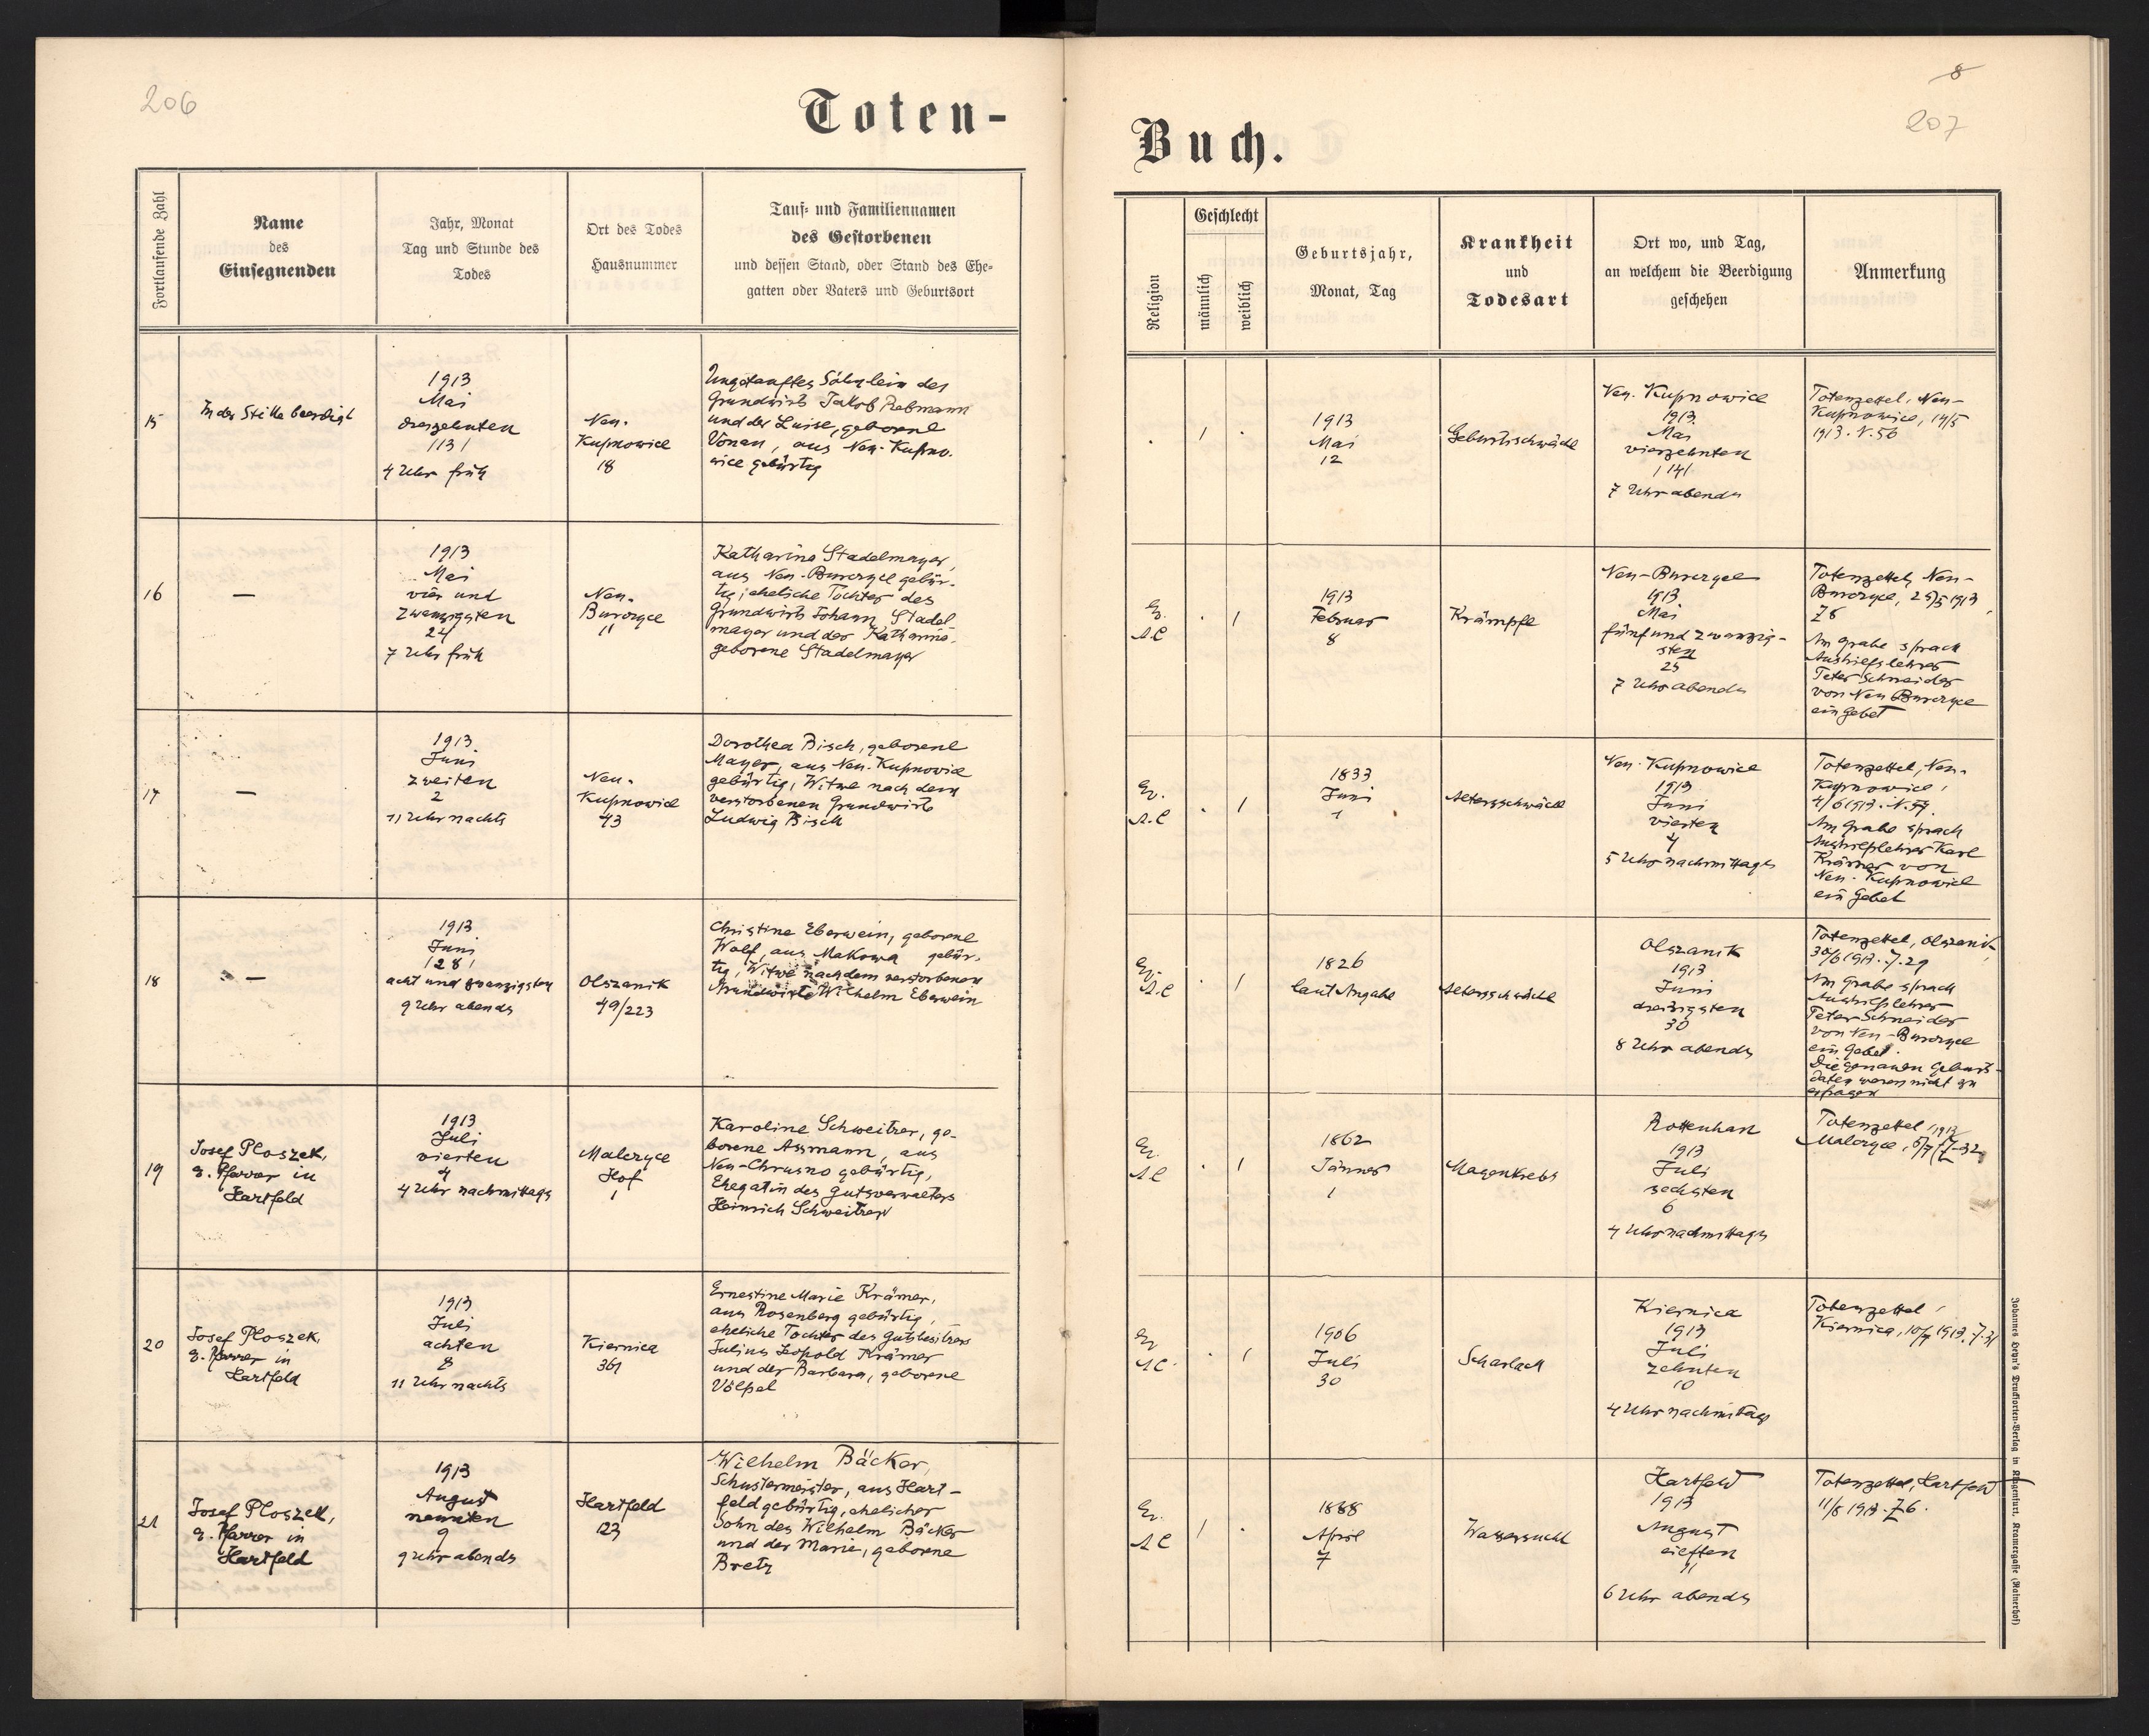 206
Toten-
Fortlaufende Zahl
Name
des
Einsegnenden
Jahr, Monat
Tag und Stunde des
Todes
Ort des Todes
Hausnummer
Tauf- und Familiennamen
des Gestorbenen
und dessen Stand, oder Stand des Ehe-
gatten oder Vaters und Geburtsort
15
In der Stille beerdigt
1913
Mai
dreizehnten
/13/
4 Uhr früh
Neu-
Kupnowice
18
Ungetauftes Söhnlein des
Grundwirts Jakob Rebmann
und der Luise, geborene
Vonau, aus Neu-Kupno-
wice gebürtig
16
—
1913
Mai
vier und
zwanzigsten
24
7 Uhr früh
Neu-
Burczyce
11
Katharina Stadelmayer,
aus Neu-Burczyce gebür-
tig, eheliche Tochter des
Grundwirts Johann Stadel-
mayer und der Katharina,
geborene Stadelmayer
17
—
1913
Juni
zweiten
2
11 Uhr nachts
Neu-
Kupnowice
43
Dorothea Bisch, geborene
Mayer, aus Neu-Kupnowice
gebürtig, Witwe nach dem
verstorbenen Grundwirts
Ludwig Bisch
18
—
1913
Juni
/28/
acht und zwanzigsten
9 Uhr abends
Olszanik
49/223
Christine Eberwein, geborene
Wolf, aus Makowa gebür-
tig, Witwe nach dem verstorbenen
Grundwirte Wilhelm Eberwein
19
Josef Ploszek,
g. Pfarrer in
Hartfeld
1913
Juli
vierten
4
4 Uhr nachmittags
Malczyce
Hof
1
Karoline Schweitzer, ge-
borene Assmann, aus
Neu-Chrusno gebürtig,
Ehegatin des Gutsverwalters
Heinrich Schweitzer
20
Josef Ploszek,
g. Pfarrer in
Hartfeld
1913
Juli
achten
8
11 Uhr nachts
Kiernica
361
Ernestine Marie Krämer,
aus Rosenberg gebürtig,
eheliche Tochter des Gutsbesitzers
Julius Leopold Krämer
und der Barbara, geborene
Völpel
21
Josef Ploszek,
g. Pfarrer in
Hartfeld
1913
August
neunten
9
9 Uhr abends
Hartfeld
123
Wilhelm Bäcker,
Schustermeister, aus Hart-
feld gebürtig, ehelicher
Sohn des Wilhelm Bäcker
und der Marie, geborene
Bretz
8
207
Buch.
Religion
Geschlecht
männlich
weiblich
Geburtsjahr,
Monat, Tag
Krankheit
und
Todesart
Ort wo, und Tag,
an welchem die Beerdigung
geschehen
Anmerkung
1
1913
Mai
12
Geburtsschwäche
Neu-Kupnowice
1913
Mai
vierzehnten
/14/
7 Uhr abends
Totenzettel, Neu-
Kupnowice, 14/5
1913. N. 56
Ev.
A.C
1
1913
Februar
8
Krämpfe
Neu-Burczyce
1913
Mai
fünf und zwanzig-
sten
25
7 Uhr abends
Totenzettel, Neu-
Burczyce, 25/5 1913
Z 8
Am Grabe sprach
Aushilfslehrer
Peter Schneider
von Neu Burczyce
ein Gebet
Ev.
A.C
1
1833
Juni
1
Altersschwäche
Neu-Kupnowice
1913
Juni
vierten
4
5 Uhr nachmittags
Totenzettel, Neu-
Kupnowice,
4/6 1913. N. 57.
Am Grabe sprach
Aushilfslehrer Karl
Krämer von
Neu-Kupnowice
ein Gebet
Ev.
A.C
1
1826
laut Angabe
Altersschwäche
Olszanik
1913
Juni
dreizigsten
30
8 Uhr abends
Totenzettel, Olszanik,
30/6 1913. Z. 29
Am Grabe sprach
Aushilfslehrer
Peter Schneider
von Neu-Burczyce
ein Gebet.
Die genauen Geburts-
daten waren nicht zu
erfragen
Ev.
A.C
1
1862
Jänner
1
Magenkrebs
Rottenhan
1913
Juli
sechsten
6
4 Uhr nachmittags
Totenzettel, 1913
Malczyce, 6/7 Z-32
Ev.
A.C.
1
1906
Juli
30
Scharlach
Kiernica
1913
Juli
zehnten
10
4 Uhr nachmittags
Totenzettel,
Kiernica, 10/7 1913. Z. 31
Ev.
A.C
1
1888
April
7
Wassersucht
Hartfeld
1913
August
eilften
11
6 Uhr abends
Totenzettel, Hartfeld
11/8 1913. Z 6.
Johannes Heyn's Drucksorten-Verlag in Klagenfurt, Kramergasse (Rainerhof)